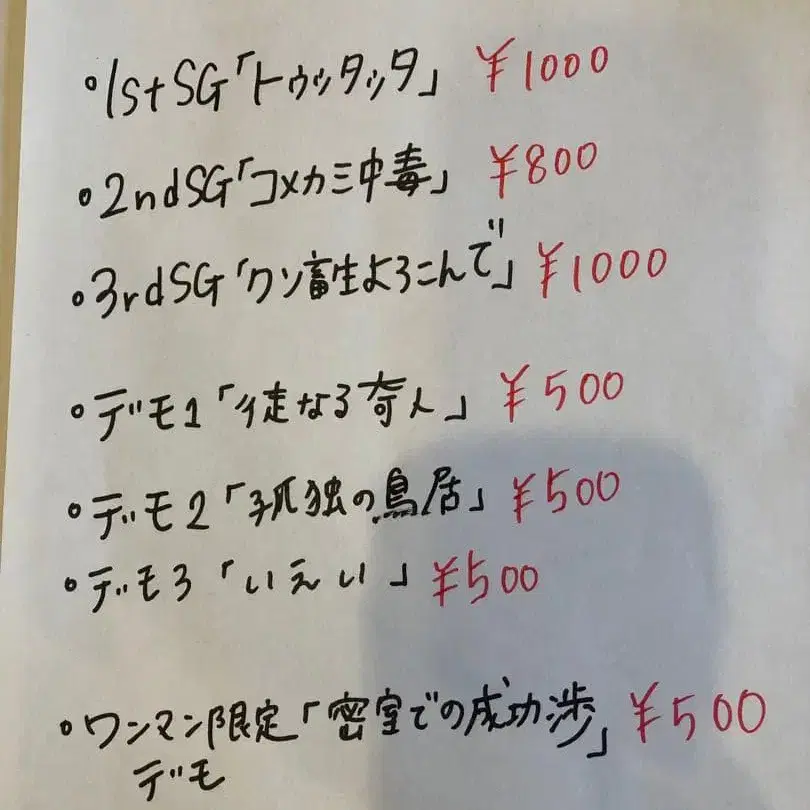 ・1stSG「トゥッタッタ」 ¥1000
・2ndSG「コメカミ中毒」 ¥800
・3rdSG「クソ畜生よろこんで」 ¥1000
・デモ1「徒なる奇人」 ¥500
・デモ2「孤独の鳥居」 ¥500
・デモ3「いえい」 ¥500
・ワンマン限定「密室での成功渉」 ¥500
デモ